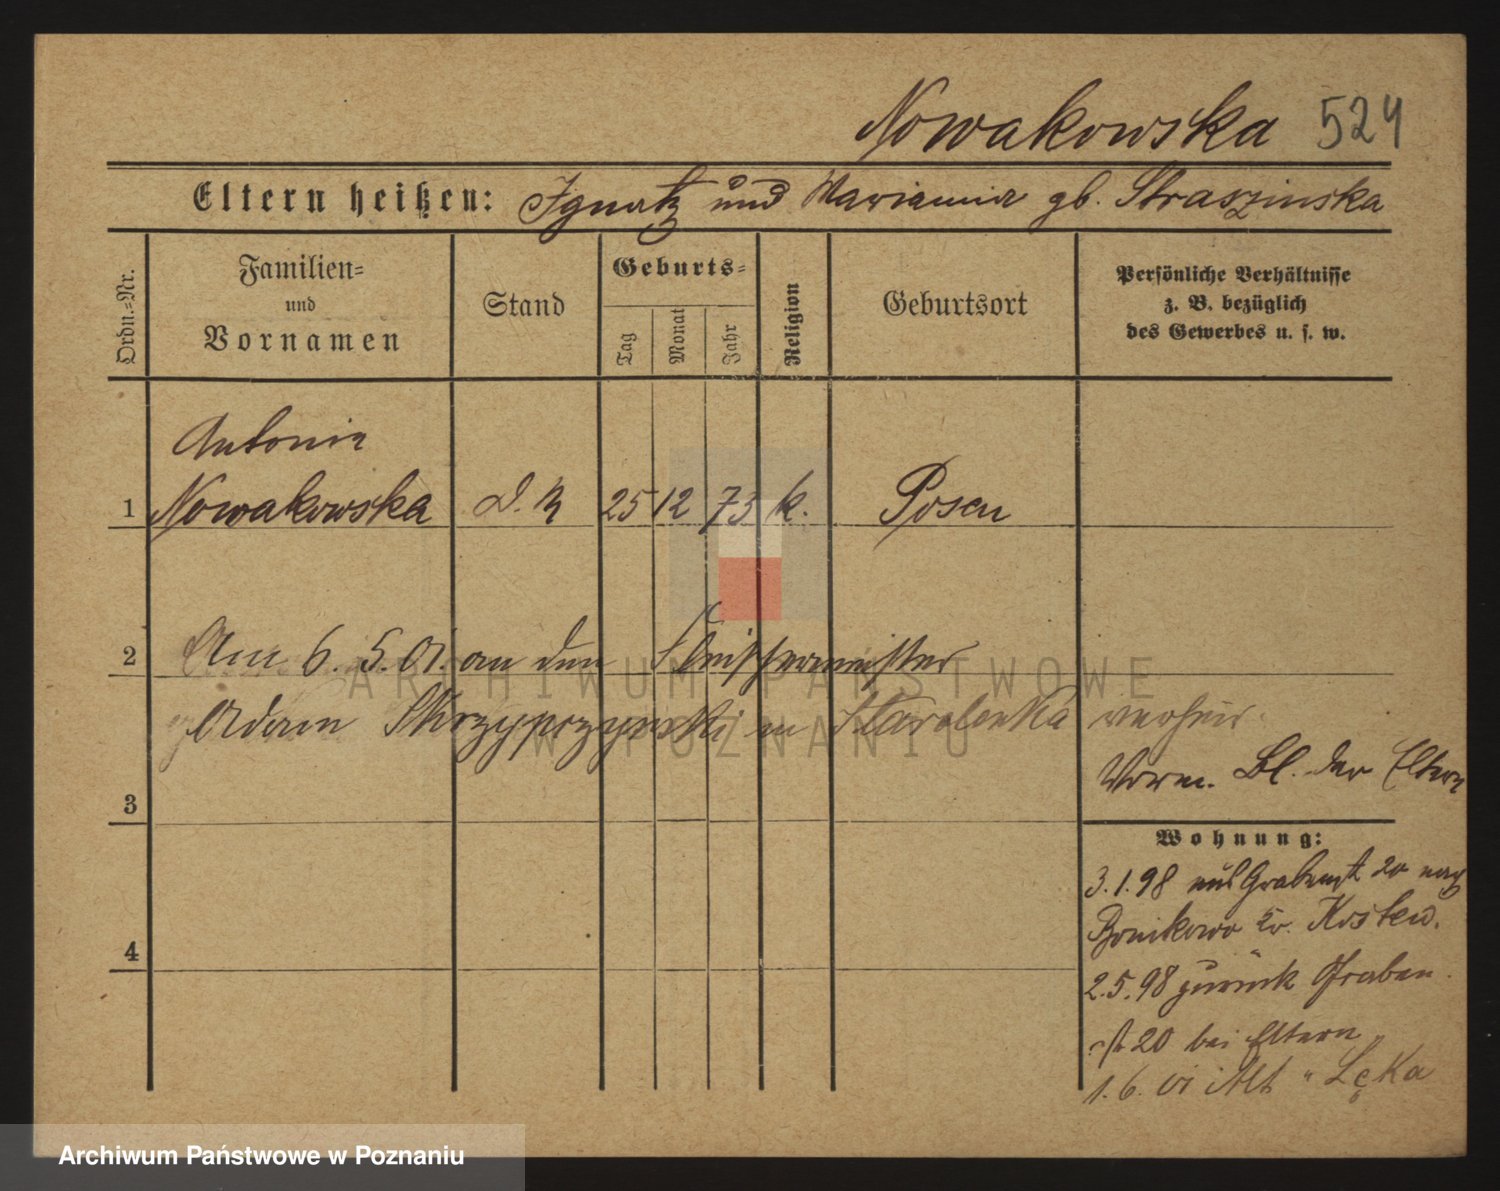 Nowakowska 524
Eltern heißen: Ignatz und Marianna gb. Straszinska
Ordn.-Nr.
Familien-
und
Vornamen
Stand
Geburts-
Tag
Monat
Jahr
Religion
Geburtsort
Persönliche Verhältnisse
z. B. bezüglich
des Gewerbes u. s. w.
Antonia
1 Nowakowska 25 12 73 k. Posen
2 Am 6. 5. 01. an den Fleischermeister
Adam Skrzypczynski in Staralenka verheir.
Vorm. Bl. der Eltern
3
Wohnung:
3. 1. 98 aus Grabenst 20 nach
Bonikowo Kr. Kosten.
4
2. 5. 98 zurück Graben
st 20 bei Eltern
1. 6. 01 Alt "Lęka
ARCHIWUM PAŃSTWOWE
W POZNANIU
Archiwum Państwowe w Poznaniu